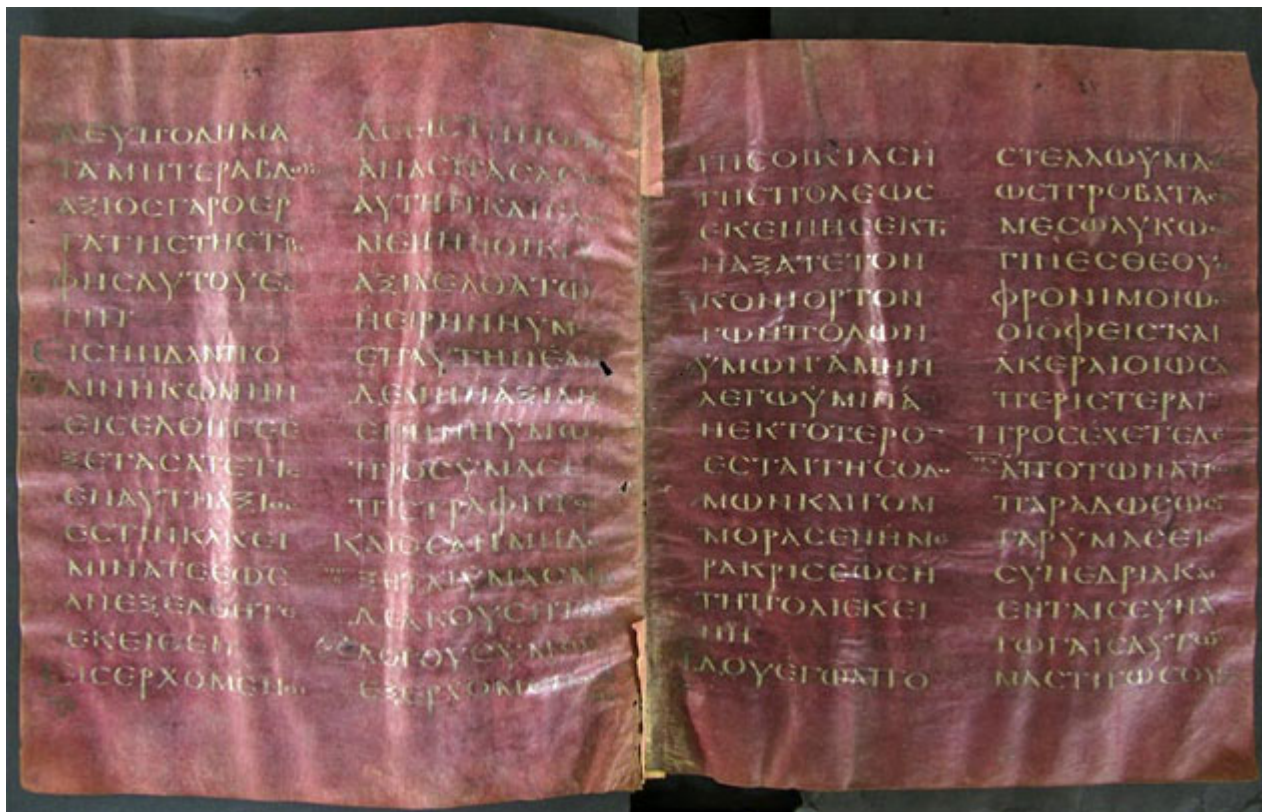 ΔΕΥΠΟΔΗΜΑ
ΤΑΜΗΤΕΡΑΒΔΟΥϹ
ΑΞΙΟϹΓΑΡΟΕΡ
ΓΑΤΗϹΤΗϹΤΡΟ
ΦΗϹΑΥΤΟΥΕϹ
ΤΙΝ
ΕΙϹΗΝΔΑΝΠΟ
ΛΙΝΗΚΩΜΗΝ
ΕΙϹΕΛΘΗΤΕΕ
ΞΕΤΑϹΑΤΕΤΙϹ
ΕΝΑΥΤΗΑΞΙΟϹ
ΕϹΤΙΝΚΑΚΕΙ
ΜΙΝΑΤΕΕΩϹ
ΑΝΕΞΕΛΘΗΤΕ
ΕΚΕΙΘΕΝ
ΕΙϹΕΡΧΟΜΕΝΟΙ
ΔΕΕΙϹΤΗΝΟΙΚΙ
ΑΝΑϹΠΑϹΑϹΘΕ
ΑΥΤΗΝΚΑΙΕΑΝ
ΜΕΝΗΗΟΙΚΙ
ΑΞΙΑΕΛΘΑΤΩ
ΗΕΙΡΗΝΗΥΜΩΝ
ΕΠΑΥΤΗΝΕΑΝ
ΔΕΜΗΗΑΞΙΑΗ
ΕΙΡΗΝΗΥΜΩΝ
ΠΡΟϹΥΜΑϹΕ
ΠΙϹΤΡΑΦΗΤΩ
ΚΑΙΟϹΑΝΜΗΔΕ
ΞΗΤΑΙΥΜΑϹΜΗ
ΔΕΑΚΟΥϹΗΤΟΥϹ
ΛΟΓΟΥϹΥΜΩΝ
ΕΞΕΡΧΟΜΕΝΟΙ
ΤΗϹΟΙΚΙΑϹΗ
ΤΗϹΠΟΛΕΩϹ
ΕΚΕΙΝΗϹΕΚΤΙ
ΝΑΞΑΤΕΤΟΝ
ΚΟΝΙΟΡΤΟΝ
ΤΩΝΠΟΔΩΝ
ΥΜΩΝΑΜΗΝ
ΛΕΓΩΥΜΙΝΑ
ΝΕΚΤΟΤΕΡΟΝ
ΕϹΤΑΙΓΗϹΟΔΟ
ΜΩΝΚΑΙΓΟΜ
ΜΟΡΑϹΕΝΗΜΕ
ΡΑΚΡΙϹΕΩϹΗ
ΤΗΠΟΛΙΕΚΕΙ
ΝΗ
ΙΔΟΥΕΓΩΑΠΟ
ϹΤΕΛΛΩΥΜΑϹ
ΩϹΠΡΟΒΑΤΑΕΝ
ΜΕϹΩΛΥΚΩΝ
ΓΙΝΕϹΘΕΟΥΝ
ΦΡΟΝΙΜΟΙΩϹ
ΟΙΟΦΕΙϹΚΑΙ
ΑΚΕΡΑΙΟΙΩϹΑΙ
ΠΕΡΙϹΤΕΡΑΙ
ΠΡΟϹΕΧΕΤΕΔΕ
ΑΠΟΤΩΝΑΝΩΝ
ΠΑΡΑΔΩϹΩϹΙΝ
ΓΑΡΥΜΑϹΕΙϹ
ϹΥΝΕΔΡΙΑΚΑΙ
ΕΝΤΑΙϹϹΥΝΑ
ΓΩΓΑΙϹΑΥΤΩΝ
ΜΑϹΤΙΓΩϹΟΥϹΙΝ